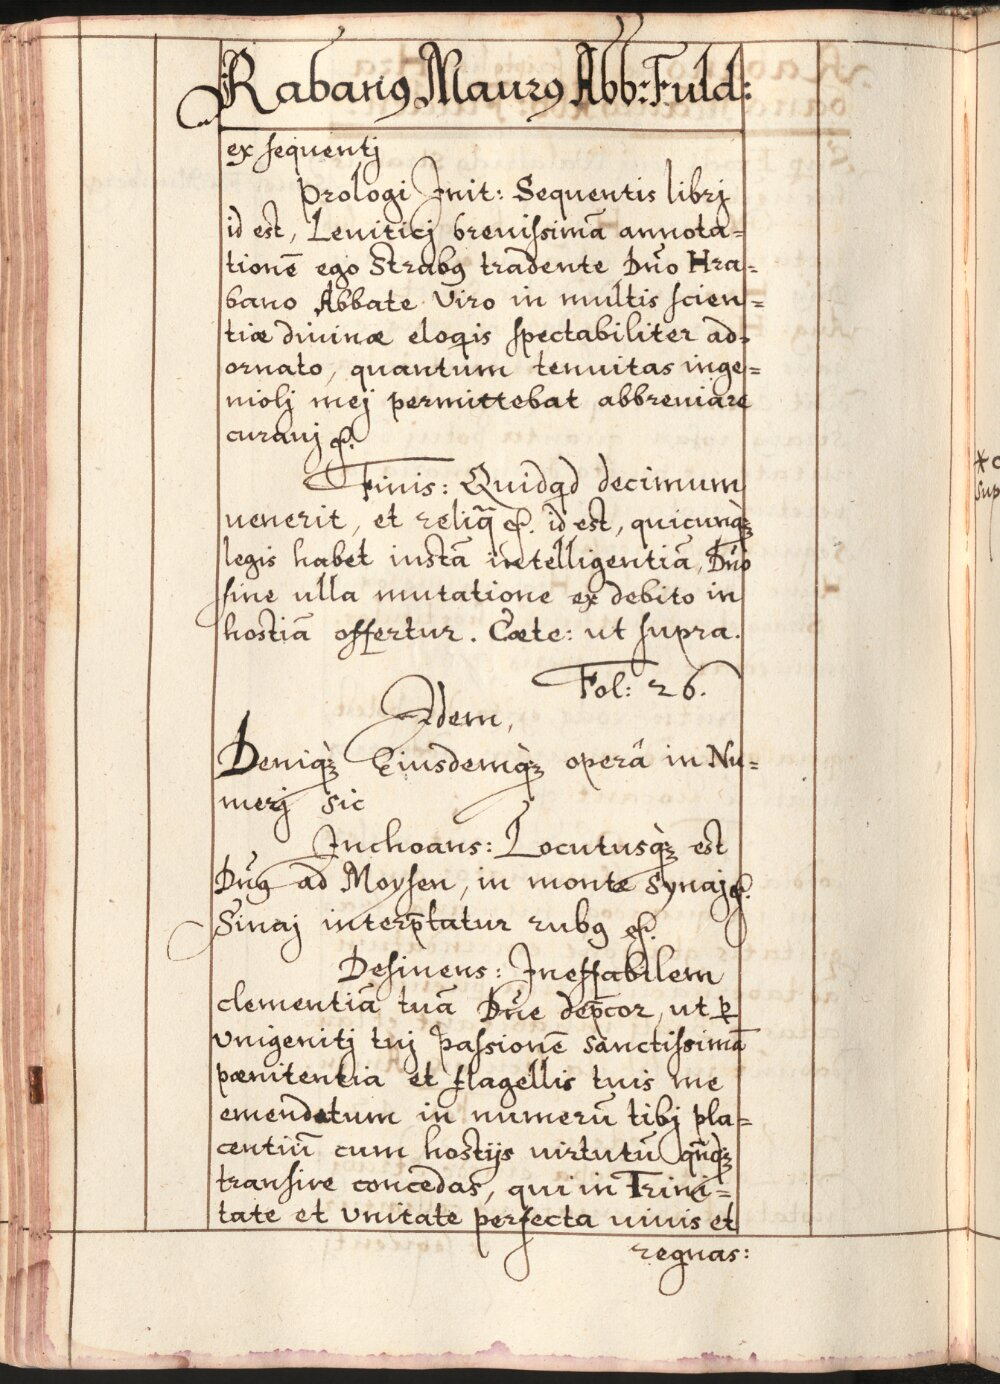 Rabanꝰ Maurꝰ Abb: Fuld:
ex sequentj
Prologi Init: Sequentis librj
id est, Leuiticj breuissimã annota=
tionẽ ego Strabꝰ tradente Dño Hra=
bano Abbate viro in multis scien=
tiæ diuinæ eloqis spectabiliter ad=
ornato, quantum tenuitas inge=
niolj mej permittebat abbreuiare
curauj &.
Finis: Quidqd decimum
uenerit, et reliq̃ &. id est, quicunqꝫ
legis habet iustã intelligentiã, Dño
sine ulla mutatione ex debito in
hostiã offertur. Cæte: ut supra.
Fol: 26.
Idem,
Deniqꝫ Eiusdemqꝫ operã in Nu=
merj sic
Inchoans: Locutusqꝫ est
Dñꝰ ad Moysen, in monte Synaj &.
Sinaj interp̃tatur rubꝰ &.
Desinens: Ineffabilem
clementiã tuã Dñe dep̃cor, ut ꝑ
vnigenitj tuj passionẽ sanctissimã
pænitentia et flagellis tuis me
emendatum in numerũ tibj pla=
centiũ cum hostijs uirtutũ qñqꝫ
transire concedas, qui in Trini=
tate et vnitate perfecta uiuis et
regnas: